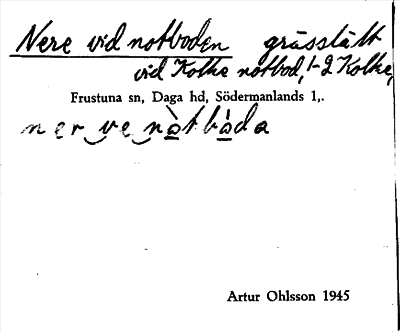 Nere vid notboden grässlätt
vid Kolke notbod, 1-2 Kolke,
Frustuna sn, Daga hd, Södermanlands l,.
ner ve nòtbòda
Artur Ohlsson 1945